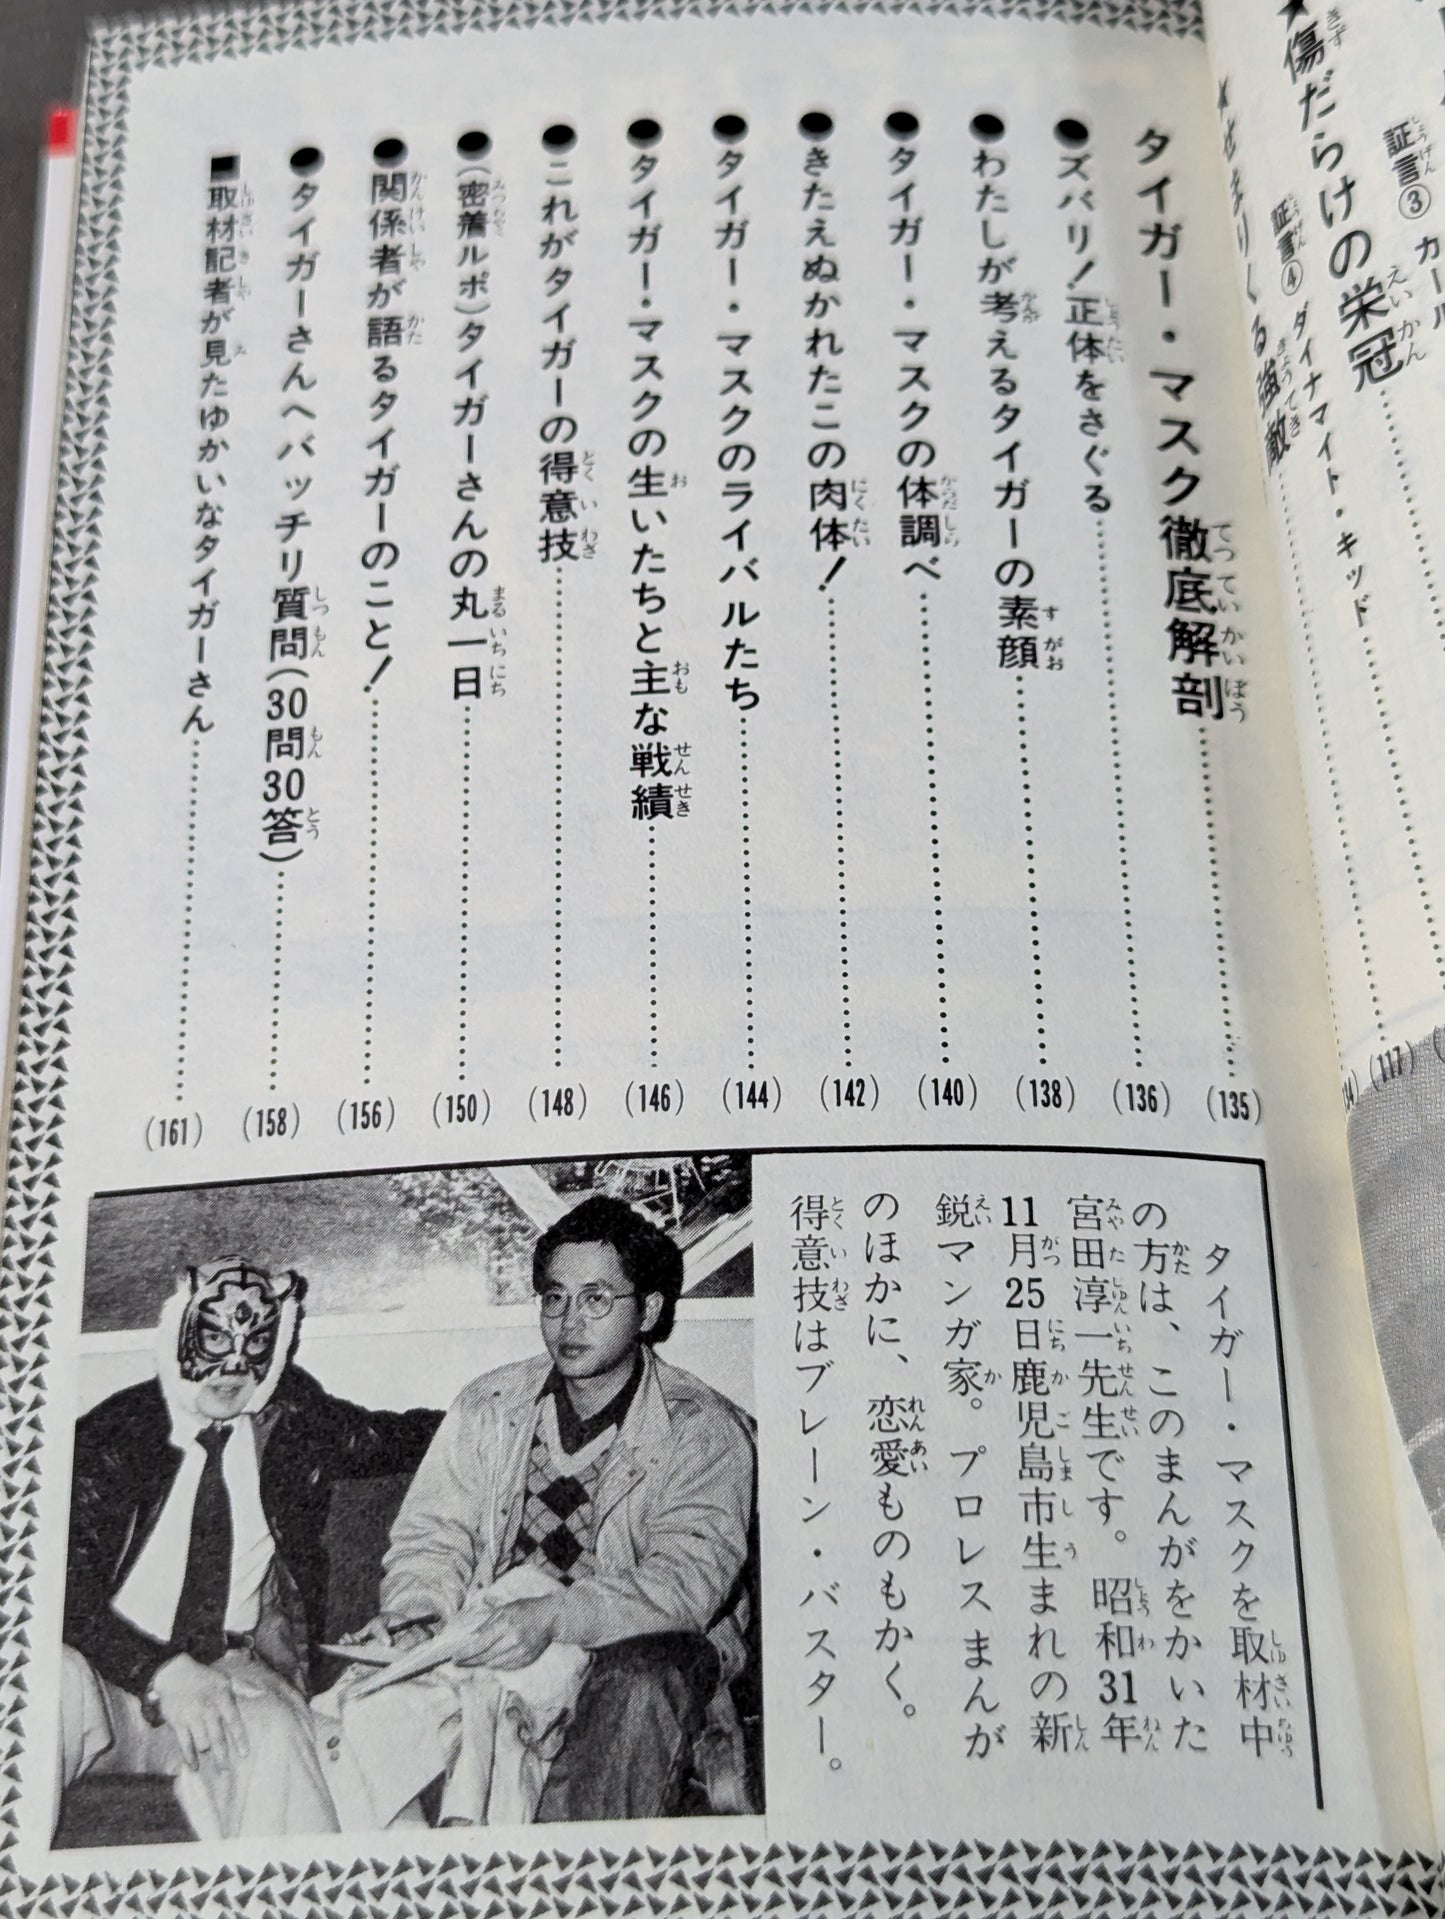 ★傷だらけの栄冠
証言③
カール
証言④ ダイナマイト・キッド
(117)
★せまりくる強敵
タイガー・マスク徹底解剖 (135)
●ズバリ！正体をさぐる (136)
●わたしが考えるタイガーの素顔 (138)
●タイガー・マスクの体調べ (140)
●きたえぬかれたこの肉体！ (142)
●タイガー・マスクのライバルたち (144)
●タイガー・マスクの生いたちと主な戦績 (146)
●これがタイガーの得意技 (148)
●(密着ルポ)タイガーさんの丸一日 (150)
●関係者が語るタイガーのこと！ (156)
●タイガーさんへバッチリ質問(30問30答) (158)
■取材記者が見たゆかいなタイガーさん (161)
タイガー・マスクを取材中
の方は、このまんがをかいた
宮田淳一先生です。昭和31年
11月25日鹿児島市生まれの新
鋭マンガ家。プロレスまんが
のほかに、恋愛ものもかく。
得意技はブレーン・バスター。